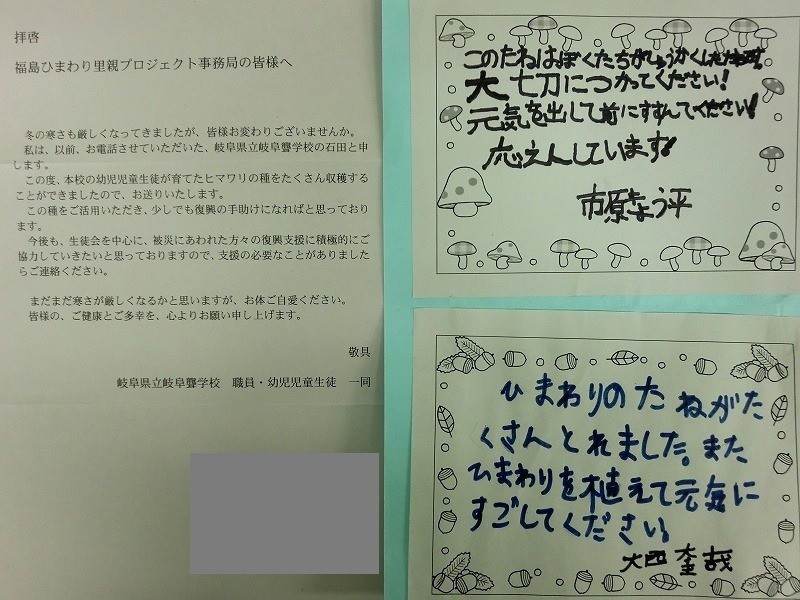 拝啓
福島ひまわり里親プロジェクト事務局の皆様へ
冬の寒さも厳しくなってきましたが、皆様お変わりございませんか。
私は、以前、お電話させていただいた、岐阜県立岐阜聾学校の石田と申
します。
この度、本校の幼児児童生徒が育てたヒマワリの種をたくさん収穫する
ことができましたので、お送りいたします。
この種をご活用いただき、少しでも復興の手助けになればと思っており
ます。
今後も、生徒会を中心に、被災にあわれた方々の復興支援に積極的にご
協力していきたいと思っておりますので、支援の必要なことがありました
らご連絡ください。
まだまだ寒さが厳しくなるかと思いますが、お体ご自愛ください。
皆様の、ご健康とご多幸を、心よりお願い申し上げます。
敬具
岐阜県立岐阜聾学校　職員・幼児児童生徒　一同
このたねはぼくたちがしゅうかくしたたねです。
大切につかってください!
元気を出して前にすすんでください!
応えんしています!
市原きょう平
ひまわりのたねがた
くさんとれました。また
ひまわりを植えて元気に
すごしてください。
大西奎哉